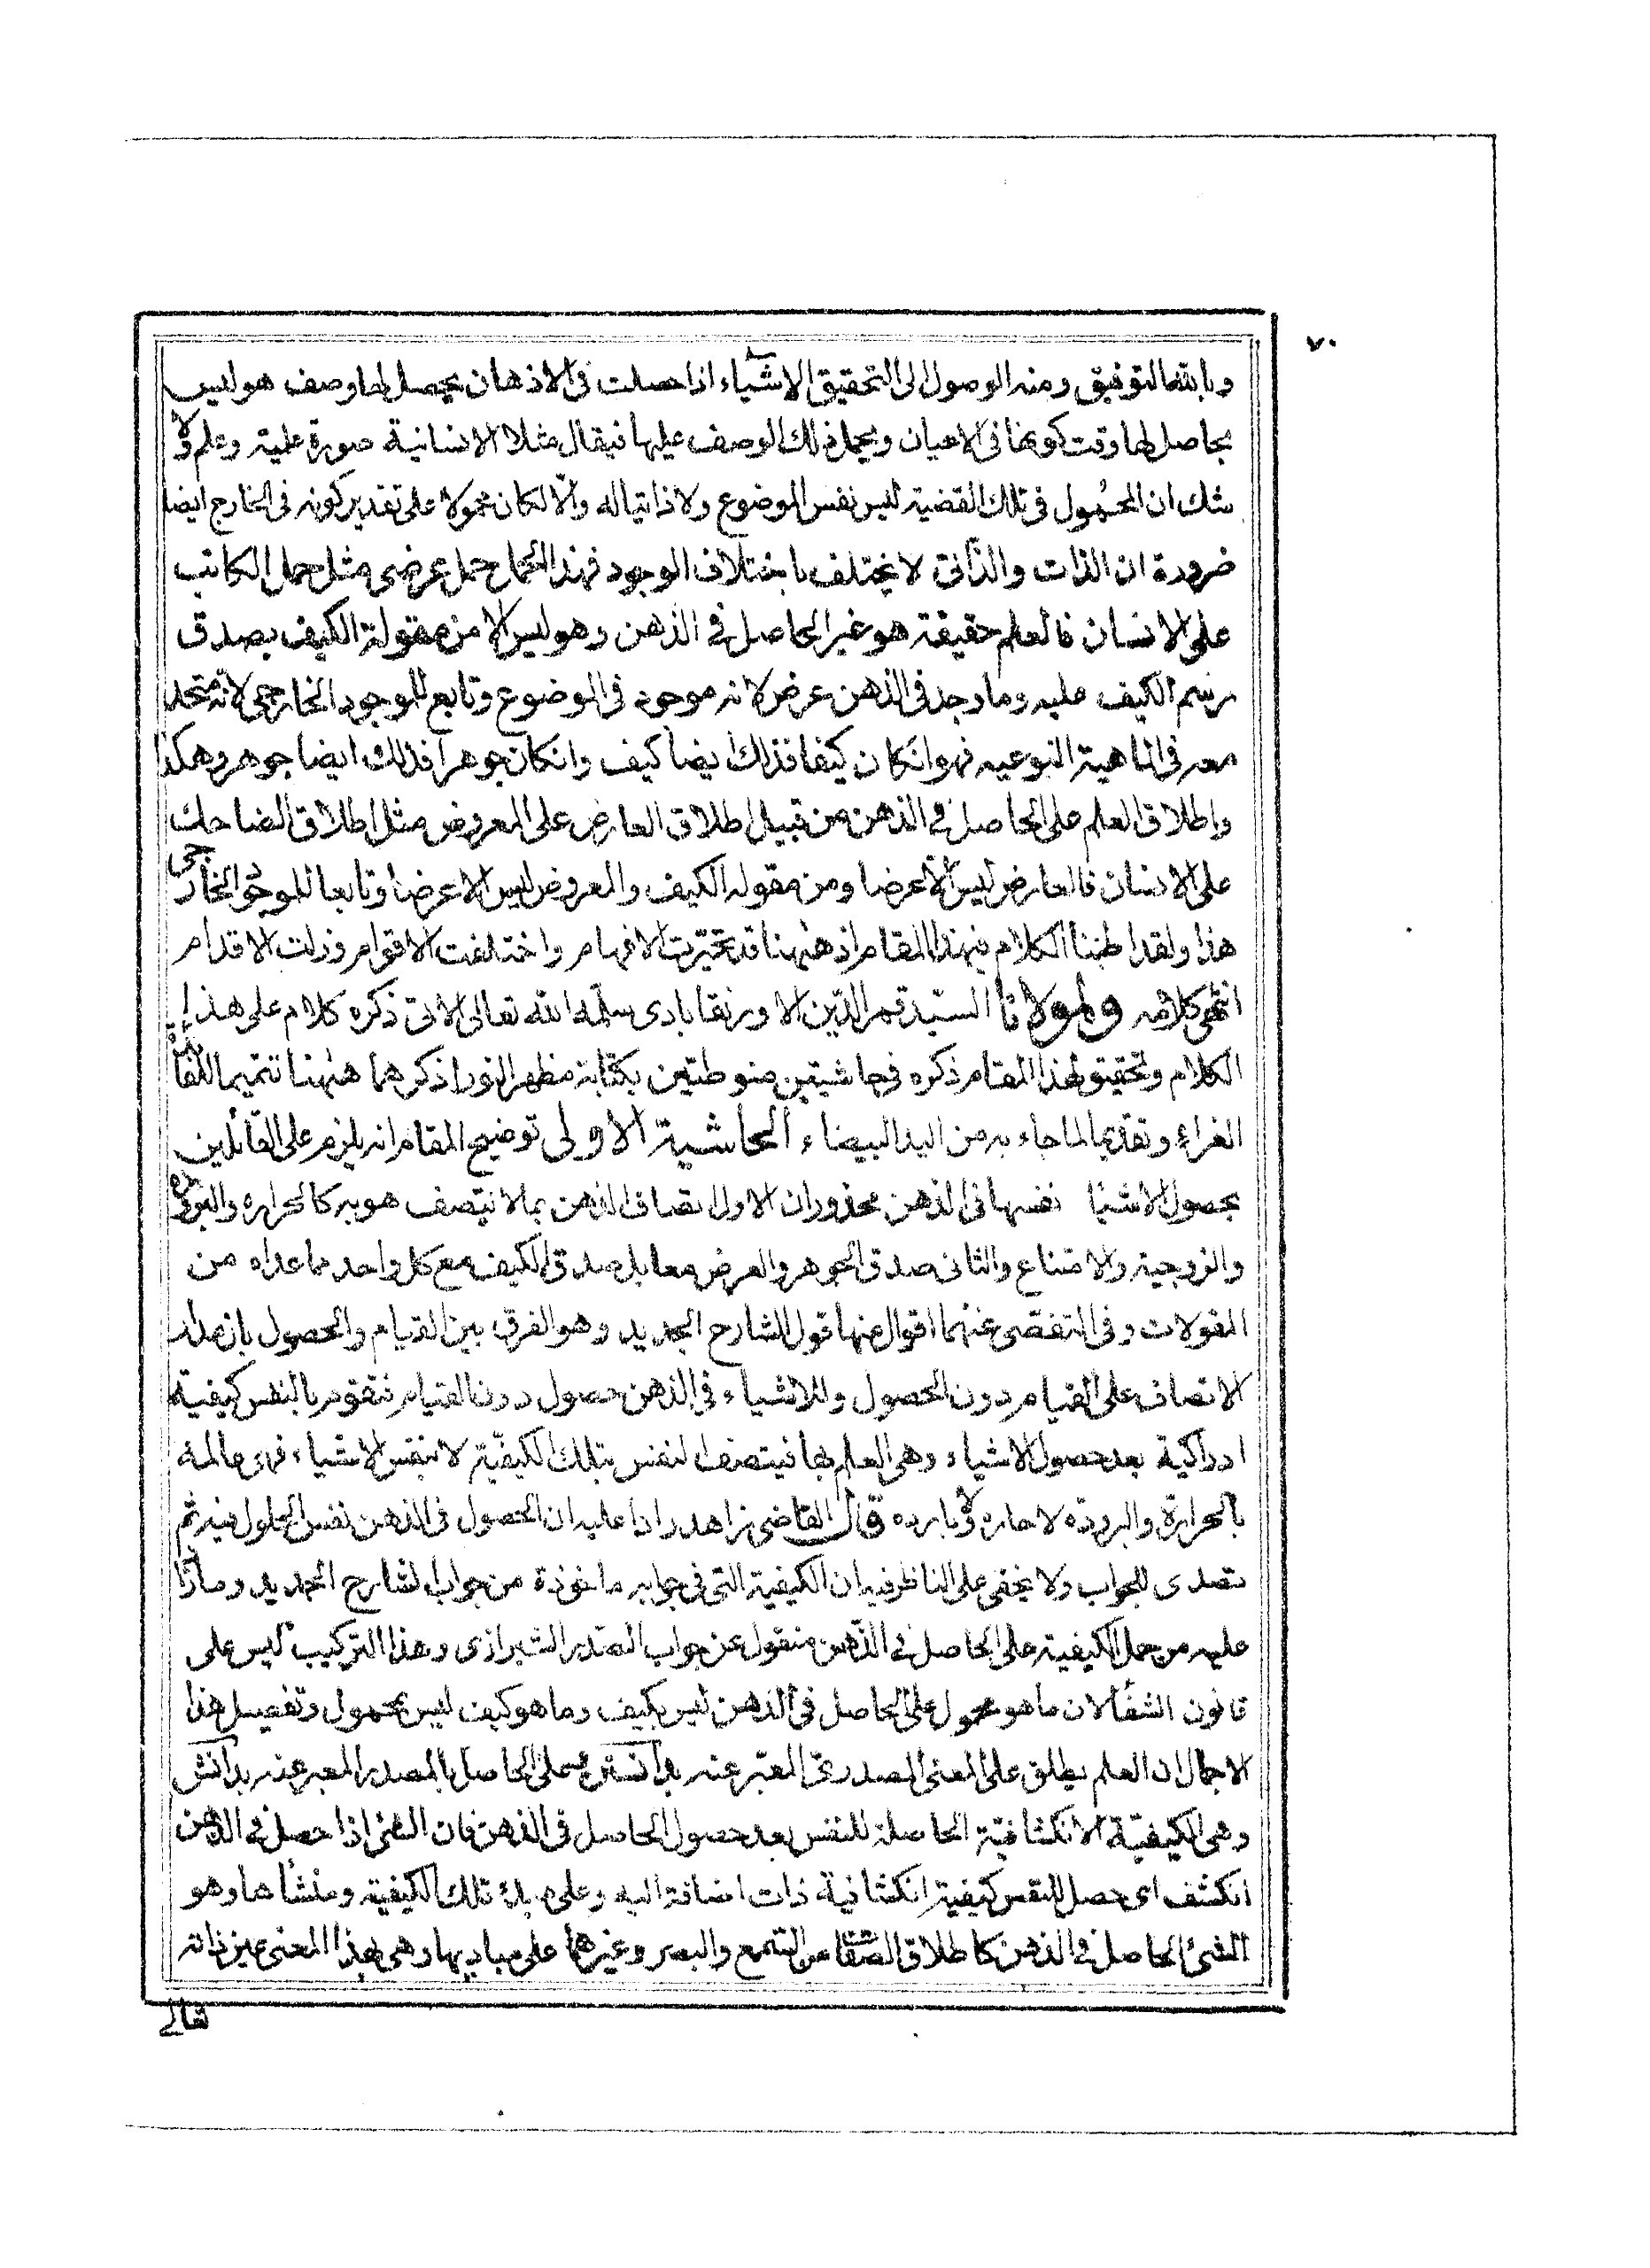 ٧٠
وبالله التوفيق ومنه الوصول الى التحقيق الاشياء اذا حصلت فى الاذهان يحصل لها وصف هو ليس
بحاصل لها وقت كونها فى الاعيان ويحمل ذلك الوصف عليها فيقال مثلا الانسانية صورة علمية وعلم ولا
شك ان المحمول فى تلك القضية ليس نفس الموضوع ولا ذاتياله والّا لكان محمولا على تقدير كونه فى الخارج ايضا
ضرورة ان الذات والذّاتى لا يختلف باختلاف الوجود فهذا الحمل حمل عرضى مثل حمل الكاتب
على الانسان فالعلم حقيقة هو غير الحاصل فى الذهن وهو ليس الا من مقولة الكيف بصدق
رسم الكيف عليه وما وجد فى الذهن عرض لانه موجود فى الموضوع وتابع للموجود الخارجى لانه متحد
معه فى الماهية النوعيه فهو انكان كيفا فذلك ايضا كيف وانكان جوهرا فذلك ايضا جوهر وهكذا
واطلاق العلم على الحاصل فى الذهن من قبيل اطلاق العارض على المعروض مثل اطلاق الضاحك
على الانسان فالعارض ليس الّا عرضا ومن مقولة الكيف والمعروض ليس الا عرضا وتابعا للموجود الخارجى
هذا ولقد اطنبنا الكلام فى هذا المقام اذ ههنا قد تحيّرت الافهام واختلفت الاقوام وزلت الاقدام
انتهى كلامه ولمولانا السيّد قمر الدّين الاورنقابادى سلّمه الله تعالى الاتى ذكره كلام على هذا
الكلام وتحقيق لهذا المقام ذكره فى حاشيتين منوطتين بكتابه مظهر النور اذكرهما ههنا تتميما
الغراء وتقديما لما جاء به من اليد البيضاء الحاشية الاولى توضيح المقام انه يلزم على القائلين
بحصول الاشيا نفسها فى الذهن محذوران الاول اتصاف الذهن بما لا يتصف هو به كالحراره والبروده
والزوجية والامتناع والثانى صدق الجوهر والعرض معا بل صدق الكيف مع كل واحد مما عداه من
المقولات وفى التفصّى عنهما اقوال منها قول الشارح الجديد وهو الفرق بين القيام والحصول بان مدار
الاتصاف على القيام دون الحصول وللاشياء فى الذهن حصول دون القيام فتقوم بالنفس كيفية
ادراكية بعد حصول الاشياء وهى العلم بها فيتصف النفس بتلك الكيفيّة لا بنفس الاشياء فهى عالمة
بالحرارة والبروده لا حاره ولا بارده قال القاضى زاهد رادا عليه ان الحصول فى الذهن نفس الحلول فيه ثم
تصدى للجواب ولا يخفى على الناظر فيه ان الكيفية التى فى جوابه ماخوذة من جواب الشارح الجديد وما زاد
عليه من حمل الكيفية على الحاصل فى الذّهن منقول عن جواب الصدر الشيرازى وهذا التركيب ليس على
قانون الشفا لان ما هو محمول على الحاصل فى الذهن ليس بكيف وما هو كيف ليس بمحمول وتفصيل هذا
الاجمال ان العلم يطلق على المعنى المصدرىّ المعبّر عنه بدانستن وعلى الحاصل بالمصدر المعبر عنه بدانش
وهى الكيفيّة الانكشافيّة الحاصلة للنفس بعد حصول الحاصل فى الذهن فان الشئ اذا حصل فى الذهن
انكشف اى حصل للنفس كيفية انكشافية ذات اضافة اليه وعلى مبدء تلك الكيفية ومنشأها وهو
الشئ الحاصل فى الذهن كاطلاق الصفات من السّمع والبصر وغيرهما على مباديها وهى بهذا المعنى عين ذاته
تعالے